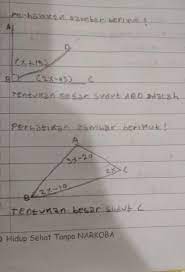 Perhatikan gambar berikut!
A
D
(x+15)
B (2x-45) C
Tentukan besar sudut ABD adalah
Perhatikan gambar berikut!
A
3x-20
2x C
B 2x-10
Tentukan besar sudut C
Hidup Sehat Tanpa NARKOBA